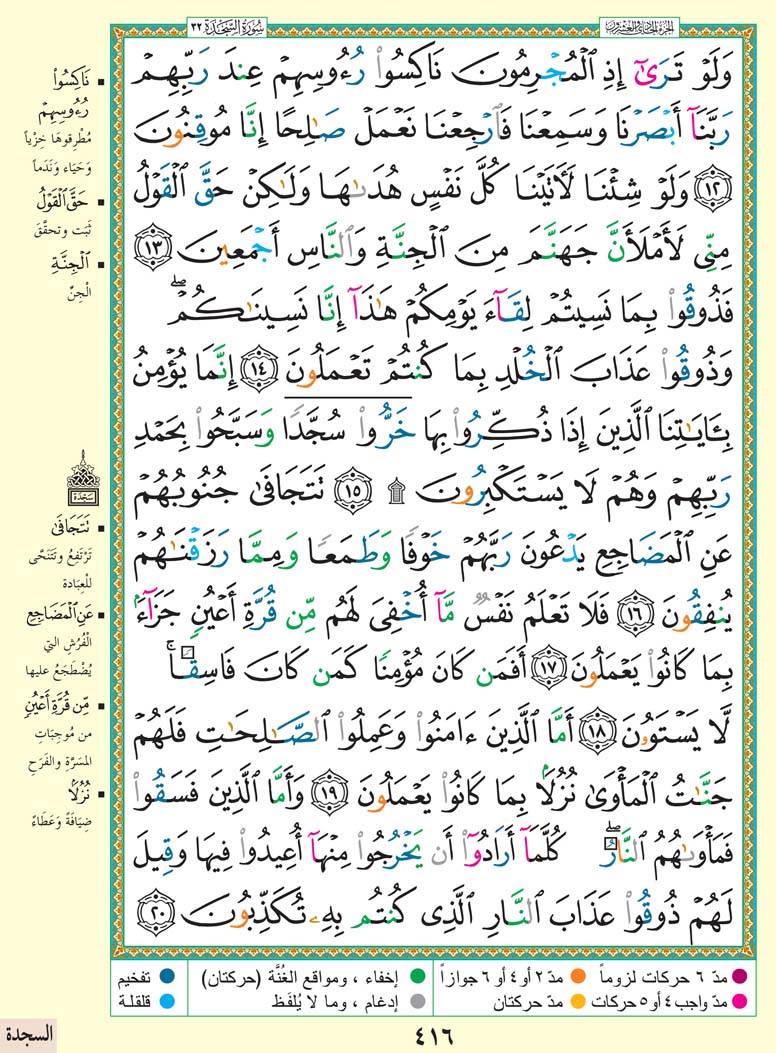 الجزء الحادي والعشرون
سُورَةُ السَّجْدَةِ ٣٢
وَلَوْ تَرَىٰٓ إِذِ ٱلْمُجْرِمُونَ نَاكِسُوا۟ رُءُوسِهِمْ عِندَ رَبِّهِمْ
رَبَّنَآ أَبْصَرْنَا وَسَمِعْنَا فَٱرْجِعْنَا نَعْمَلْ صَـٰلِحًا إِنَّا مُوقِنُونَ
١٢ وَلَوْ شِئْنَا لَـَٔاتَيْنَا كُلَّ نَفْسٍ هُدَىٰهَا وَلَـٰكِنْ حَقَّ ٱلْقَوْلُ
مِنِّى لَأَمْلَأَنَّ جَهَنَّمَ مِنَ ٱلْجِنَّةِ وَٱلنَّاسِ أَجْمَعِينَ ١٣
فَذُوقُوا۟ بِمَا نَسِيتُمْ لِقَآءَ يَوْمِكُمْ هَـٰذَآ إِنَّا نَسِينَـٰكُمْ ۖ
وَذُوقُوا۟ عَذَابَ ٱلْخُلْدِ بِمَا كُنتُمْ تَعْمَلُونَ ١٤ إِنَّمَا يُؤْمِنُ
بِـَٔايَـٰتِنَا ٱلَّذِينَ إِذَا ذُكِّرُوا۟ بِهَا خَرُّوا۟ سُجَّدًا وَسَبَّحُوا۟ بِحَمْدِ
رَبِّهِمْ وَهُمْ لَا يَسْتَكْبِرُونَ ۩ ١٥ تَتَجَافَىٰ جُنُوبُهُمْ
عَنِ ٱلْمَضَاجِعِ يَدْعُونَ رَبَّهُمْ خَوْفًا وَطَمَعًا وَمِمَّا رَزَقْنَـٰهُمْ
يُنفِقُونَ ١٦ فَلَا تَعْلَمُ نَفْسٌ مَّآ أُخْفِىَ لَهُم مِّن قُرَّةِ أَعْيُنٍ جَزَآءًۢ
بِمَا كَانُوا۟ يَعْمَلُونَ ١٧ أَفَمَن كَانَ مُؤْمِنًا كَمَن كَانَ فَاسِقًا ۚ
لَّا يَسْتَوُۥنَ ١٨ أَمَّا ٱلَّذِينَ ءَامَنُوا۟ وَعَمِلُوا۟ ٱلصَّـٰلِحَـٰتِ فَلَهُمْ
جَنَّـٰتُ ٱلْمَأْوَىٰ نُزُلًۢا بِمَا كَانُوا۟ يَعْمَلُونَ ١٩ وَأَمَّا ٱلَّذِينَ فَسَقُوا۟
فَمَأْوَىٰهُمُ ٱلنَّارُ ۖ كُلَّمَآ أَرَادُوٓا۟ أَن يَخْرُجُوا۟ مِنْهَآ أُعِيدُوا۟ فِيهَا وَقِيلَ
لَهُمْ ذُوقُوا۟ عَذَابَ ٱلنَّارِ ٱلَّذِى كُنتُم بِهِۦ تُكَذِّبُونَ ٢٠
نَاكِسُوا۟
رُءُوسِهِمْ
مُطْرِقوهَا خِزْياً
وَحَيَاء وَنَدَماً
حَقَّ ٱلْقَوْلُ
ثَبَت وتحقَّقَ
ٱلْجِنَّةِ
الْجِنّ
سجدة
تَتَجَافَىٰ
تَرْتَفِعُ وتَتَنَحَّى
للْعِبَادة
عَنِ ٱلْمَضَاجِعِ
الْفُرُشِ التي
يُضْطَجَعُ عليها
مِّن قُرَّةِ أَعْيُنٍ
من مُوجِبَاتِ
المَسَرَّةِ والفَرَحِ
نُزُلًۢا
ضِيَافَةً وَعَطَاءً
مدّ ٦ حركات لزوماً
مدّ ٢ أو ٤ أو ٦ جوازاً
إخفاء ، ومواقع الغُنَّة (حركتان)
تفخيم
مدّ واجب ٤ أو ٥ حركات
مدّ حركتان
إدغام ، وما لا يُلفَظ
قلقلة
٤١٦
السجدة